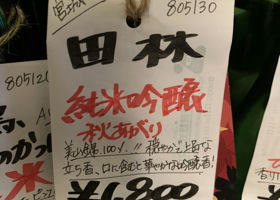 宮城
805130
田林
純米吟醸
秋あがり
美山錦100%!! 穏やかで上品な
立ち香、口に含むと華やかな吟醸香!
¥1,800
80512